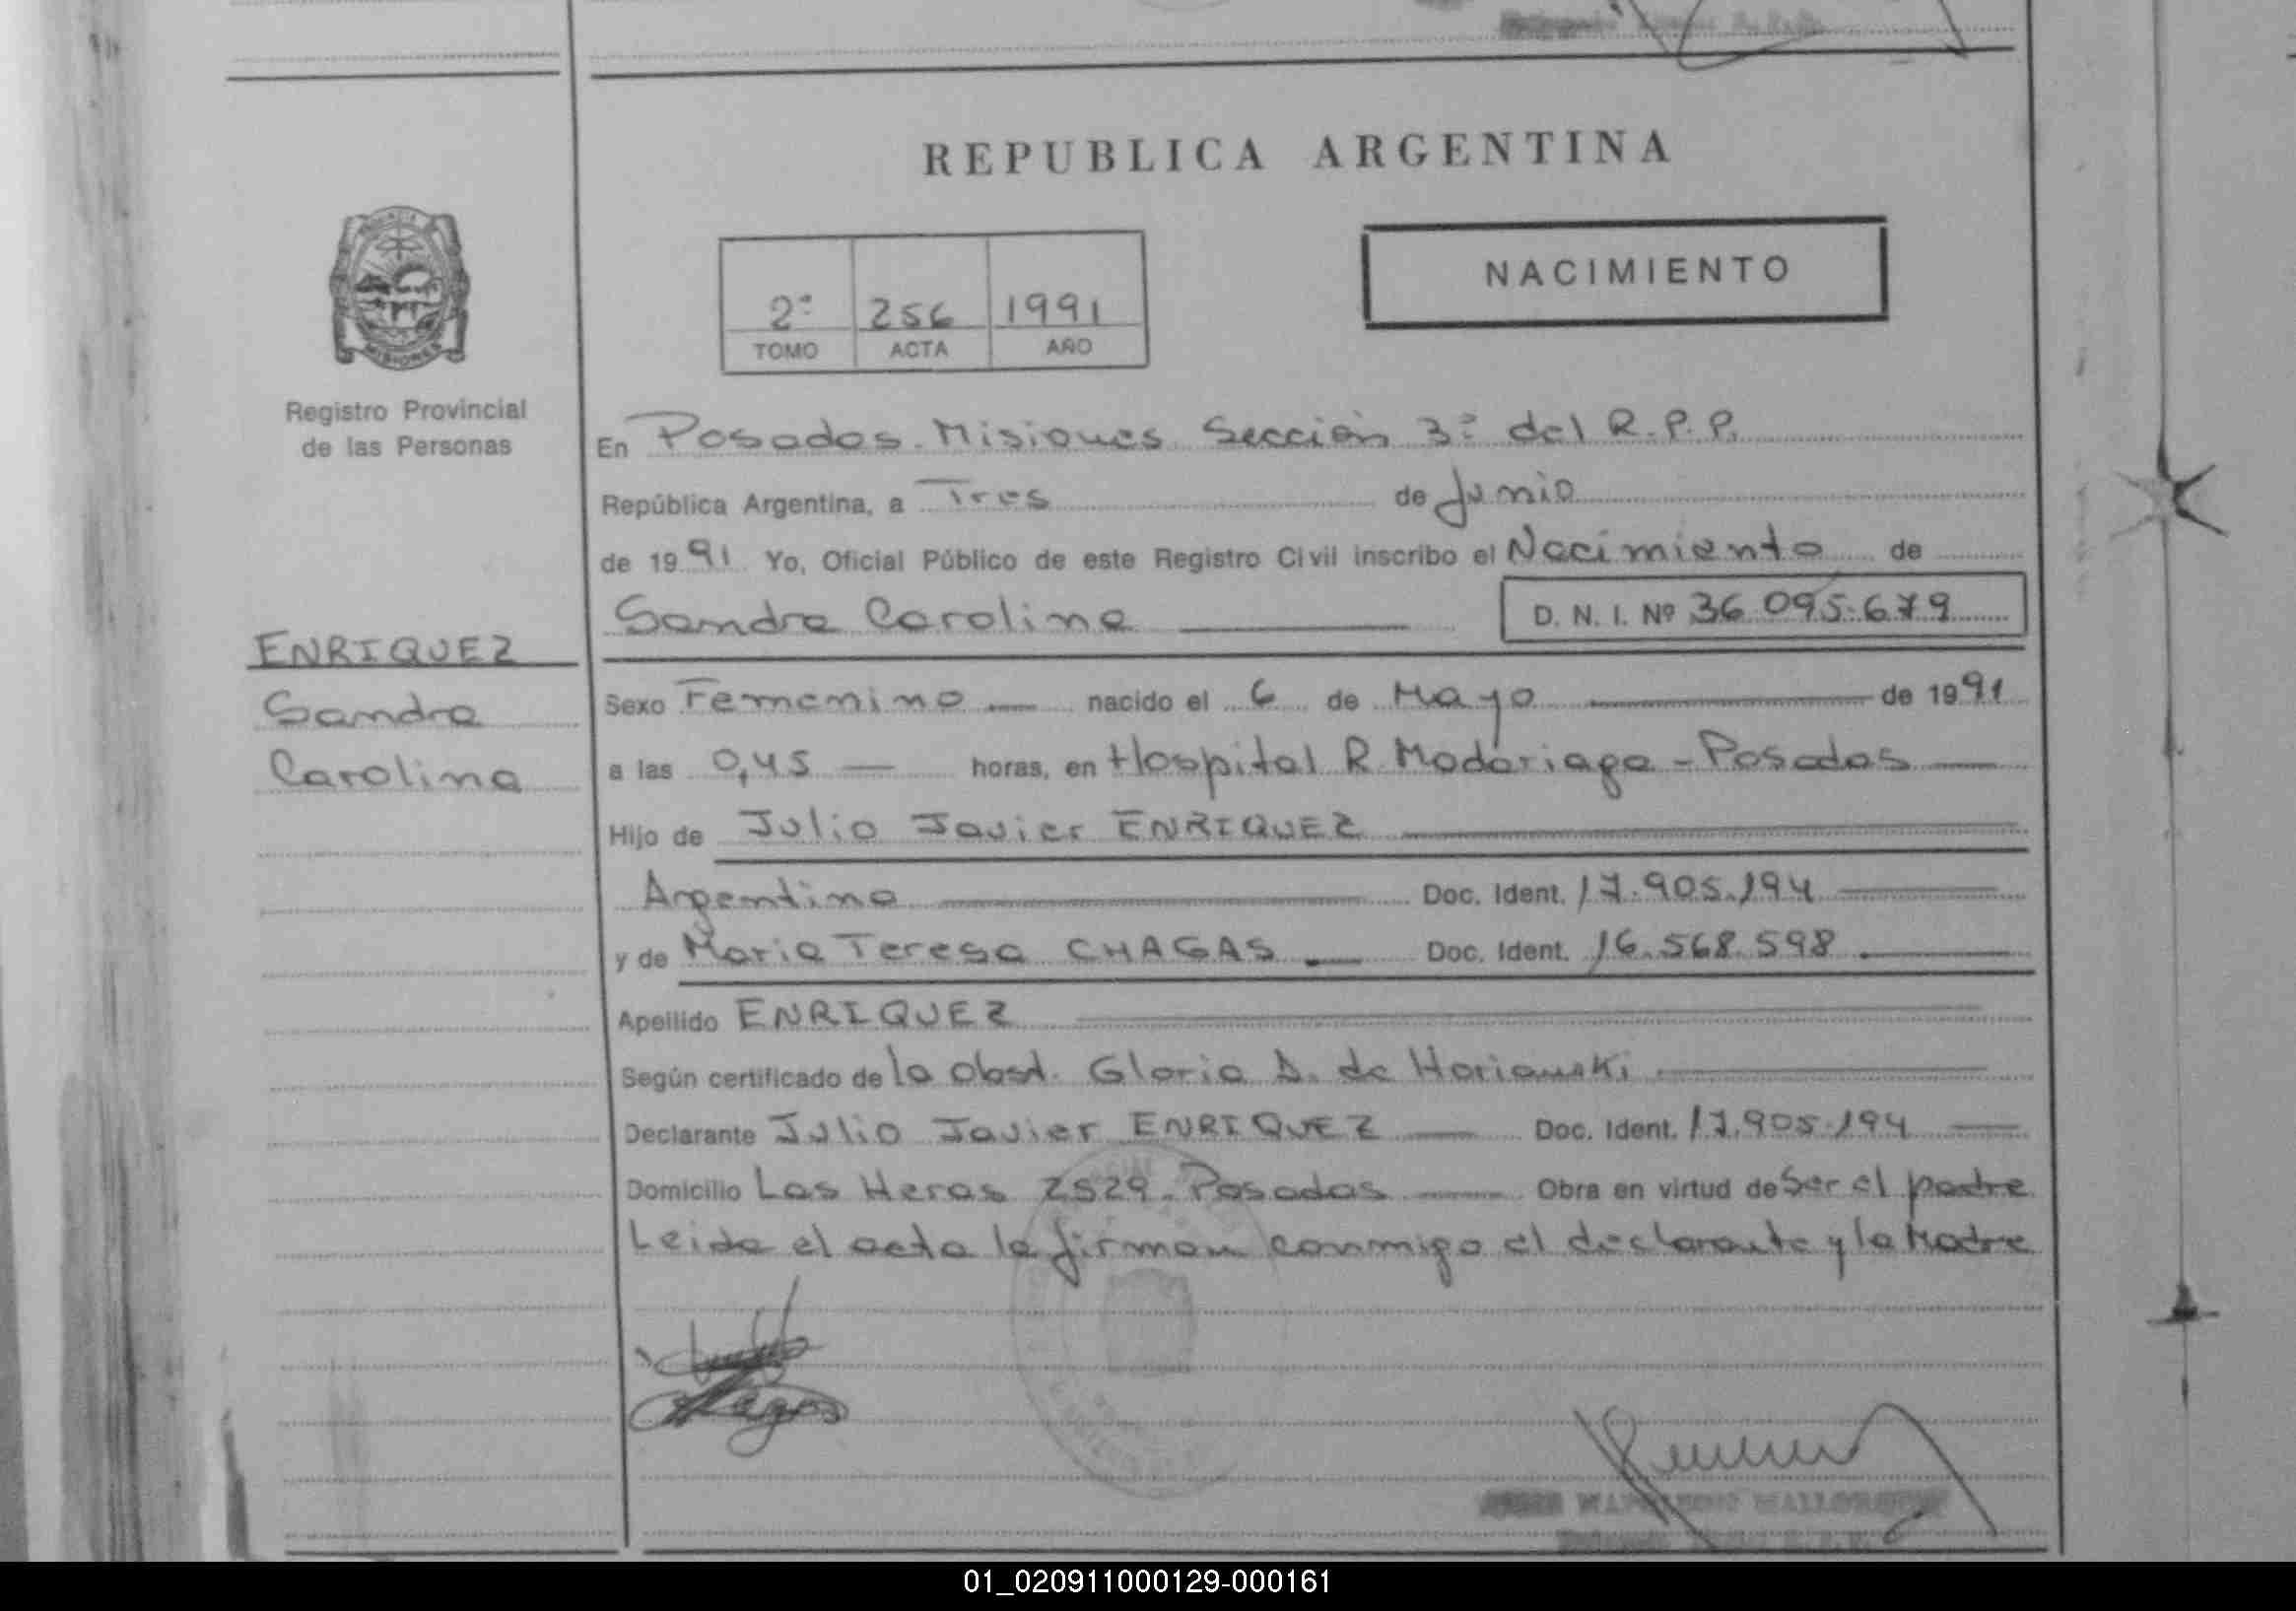 REPUBLICA ARGENTINA
NACIMIENTO
2º 256 1991
TOMO ACTA AÑO
MISIONES
Registro Provincial
de las Personas
En Posadas. Misiones Sección 3º del R.P.P.
República Argentina, a Tres de Junio
de 1991 Yo, Oficial Público de este Registro Civil inscribo el Nacimiento de
Sandra Carolina D. N. I. Nº 36.095.679
ENRIQUEZ
Sandra
Carolina
Sexo Femenino nacido el 6 de Mayo de 1991
a las 0,45 horas, en Hospital R. Madariaga - Posadas
Hijo de Julio Javier ENRIQUEZ
Argentina Doc. Ident. 17.905.194
y de Maria Teresa CHAGAS Doc. Ident. 16.568.598
Apellido ENRIQUEZ
Según certificado de la obst. Gloria D. de
Declarante Julio Javier ENRIQUEZ Doc. Ident. 17.905.194
Domicilio Las Heras 2529. Posadas Obra en virtud de Ser el padre
Leida el acta la firman conmigo el declarante y la Madre
01_020911000129-000161